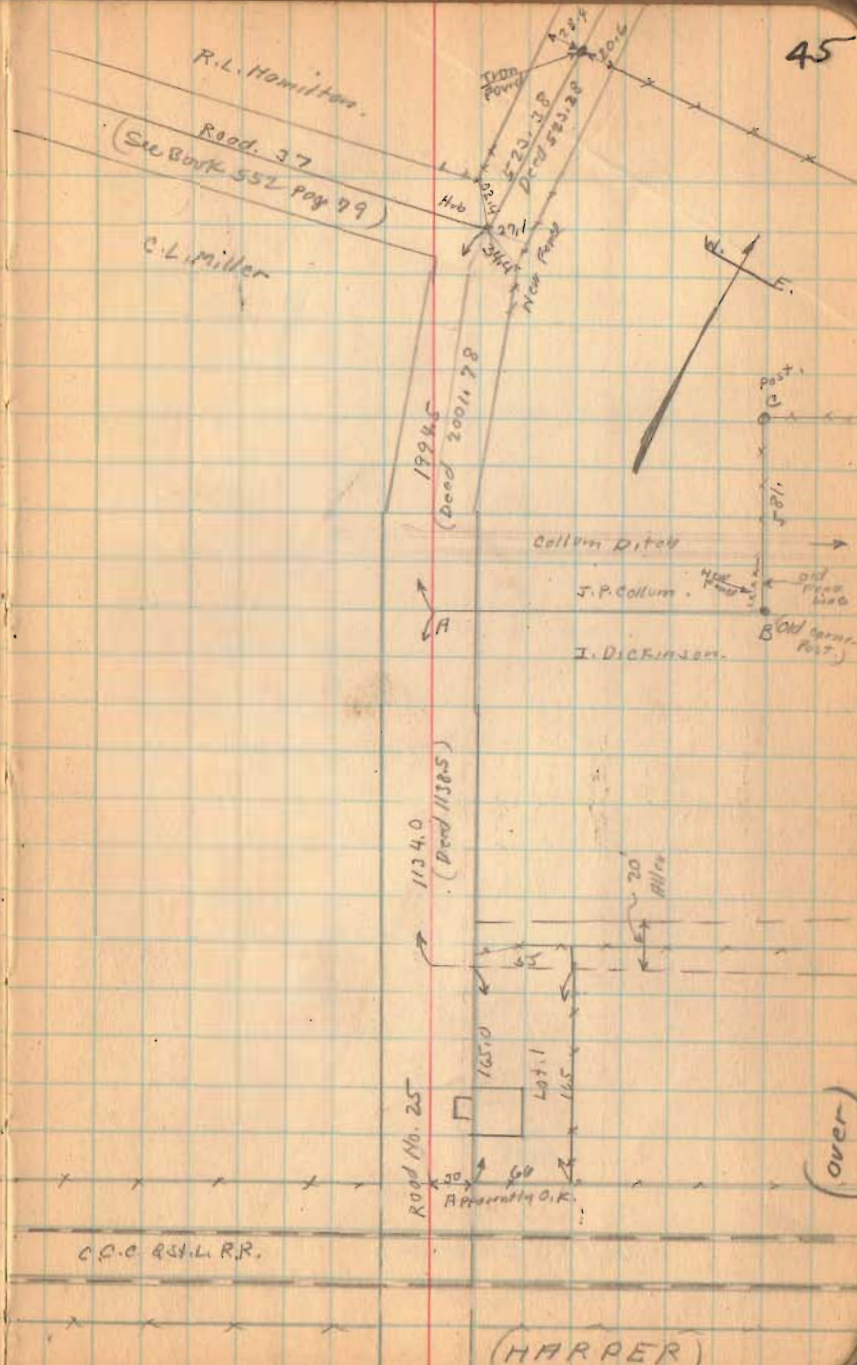 45
R.L. Hamilton.
Road. 37
(See Book 552 pag 79)
C.L. Miller
Iron
Found
28.4
20.6
523.38
Deed 523.28
Hub
27.1
34.4
New Fence
W.
E.
1994.5
(Deed 2001.78)
Post.
C
581.
Collum Ditch
J.P. Collum.
New
Fence
Old
Fence
Line
A
B
(Old corner
Post.)
I. Dickinson.
1134.0
(Deed 1138.5)
20'
Alley
165.0
Lot. 1
165
Road No. 25
30
60
Apparently O.K.
(over)
C.C.C. & St. L. R.R.
(HARPER)